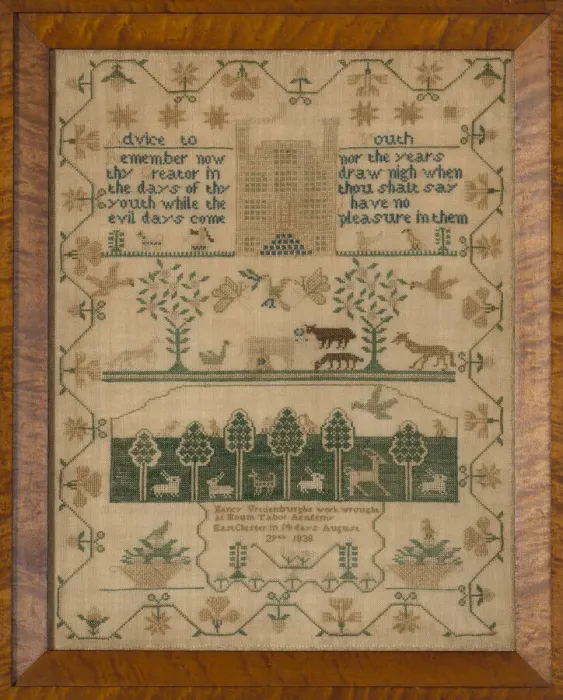 dvice to outh
emember now
thy reator in
the days of thy
youth while the
evil days come
nor the years
draw nigh when
thou shalt say
have no
pleasure in them
Nancy Vredenburghs work wrought
at Mount Tabor Academy
EastChester in 14 days August
29th 1838